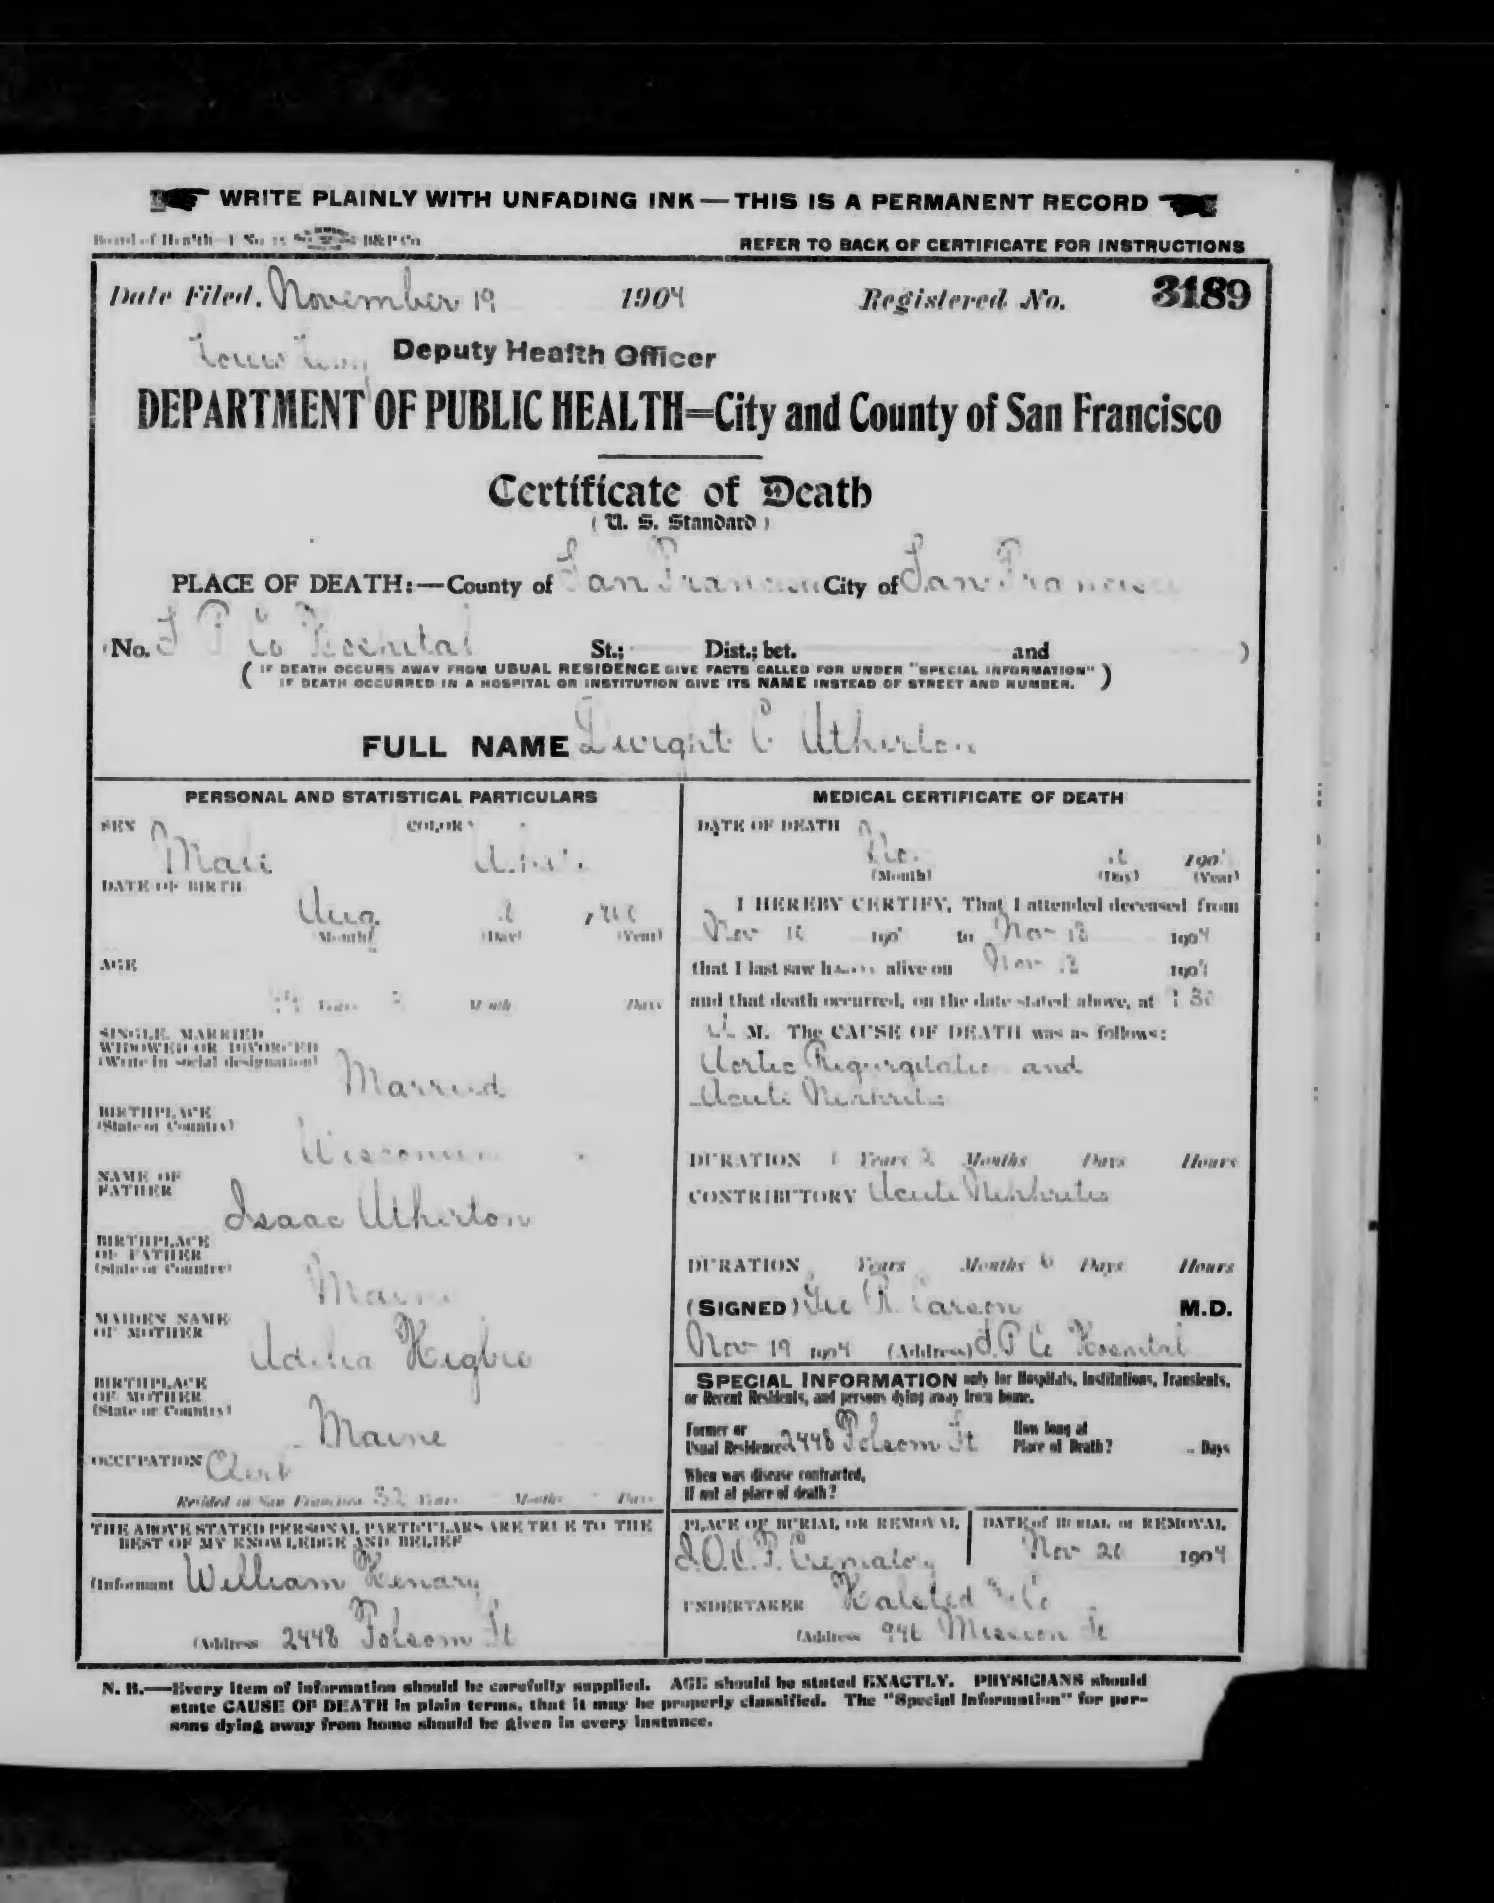 WRITE PLAINLY WITH UNFADING INK — THIS IS A PERMANENT RECORD
Board of Health—F No 15 B&P Co
REFER TO BACK OF CERTIFICATE FOR INSTRUCTIONS
Date Filed, November 19 1904 Registered No. 3189
Deputy Health Officer
DEPARTMENT OF PUBLIC HEALTH=City and County of San Francisco
Certificate of Death
( U. S. Standard )
PLACE OF DEATH:—County of San Francisco City of San Francisco
(No. S P Co Hospital St.; Dist.; bet. and )
( IF DEATH OCCURS AWAY FROM USUAL RESIDENCE GIVE FACTS CALLED FOR UNDER "SPECIAL INFORMATION" )
( IF DEATH OCCURRED IN A HOSPITAL OR INSTITUTION GIVE ITS NAME INSTEAD OF STREET AND NUMBER. )
FULL NAME Dwight C Atherton
PERSONAL AND STATISTICAL PARTICULARS
SEX Male COLOR White
DATE OF BIRTH
Aug
(Month) (Day) (Year)
AGE
Years Months Days
SINGLE, MARRIED
WIDOWED OR DIVORCED
(Write in social designation) Married
BIRTHPLACE
(State or Country) Wisconsin
NAME OF
FATHER Isaac Atherton
BIRTHPLACE
OF FATHER
(State or Country) Maine
MAIDEN NAME
OF MOTHER Higbie
BIRTHPLACE
OF MOTHER
(State or Country) Maine
OCCUPATION Clerk
Resided in San Francisco 32 Years Months Days
THE ABOVE STATED PERSONAL PARTICULARS ARE TRUE TO THE
BEST OF MY KNOWLEDGE AND BELIEF
(Informant William Henary
(Address 2448 Folsom St
MEDICAL CERTIFICATE OF DEATH
DATE OF DEATH
Nov 190
(Month) (Day) (Year)
I HEREBY CERTIFY, That I attended deceased from
Nov 190 to Nov 18 1904
that I last saw h alive on Nov 18 1904
and that death occurred, on the date stated above, at 1 30
M. The CAUSE OF DEATH was as follows:
Aortic Regurgitation and
Acute Nephritis
DURATION Years 2 Months Days Hours
CONTRIBUTORY Acute Nephritis
DURATION Years Months 6 Days Hours
(SIGNED) Geo R. Carson M.D.
Nov 19 1904 (Address) S.P Co Hospital
SPECIAL INFORMATION only for Hospitals, Institutions, Transients,
or Recent Residents, and persons dying away from home.
Former or
Usual Residence 2448 Folsom St
How long at
Place of Death? Days
When was disease contracted,
If not at place of death?
PLACE OF BURIAL OR REMOVAL
I.O.O.F. Crematory
DATE of BURIAL or REMOVAL
Nov 20 1904
UNDERTAKER Halsted & Co
(Address 946 Mission St
N. B.—Every item of information should be carefully supplied. AGE should be stated EXACTLY. PHYSICIANS should
state CAUSE OF DEATH in plain terms, that it may be properly classified. The "Special Information" for per-
sons dying away from home should be given in every instance.